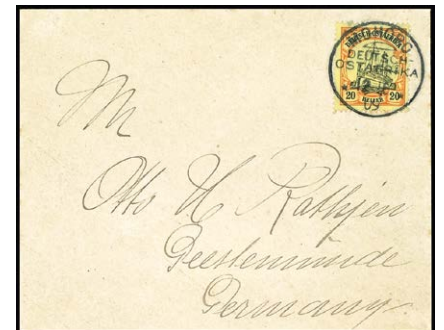 DEUTSCH-
OSTAFRIKA
20 20
Mr
Otto H Rathjen
Geestemünde
Germany